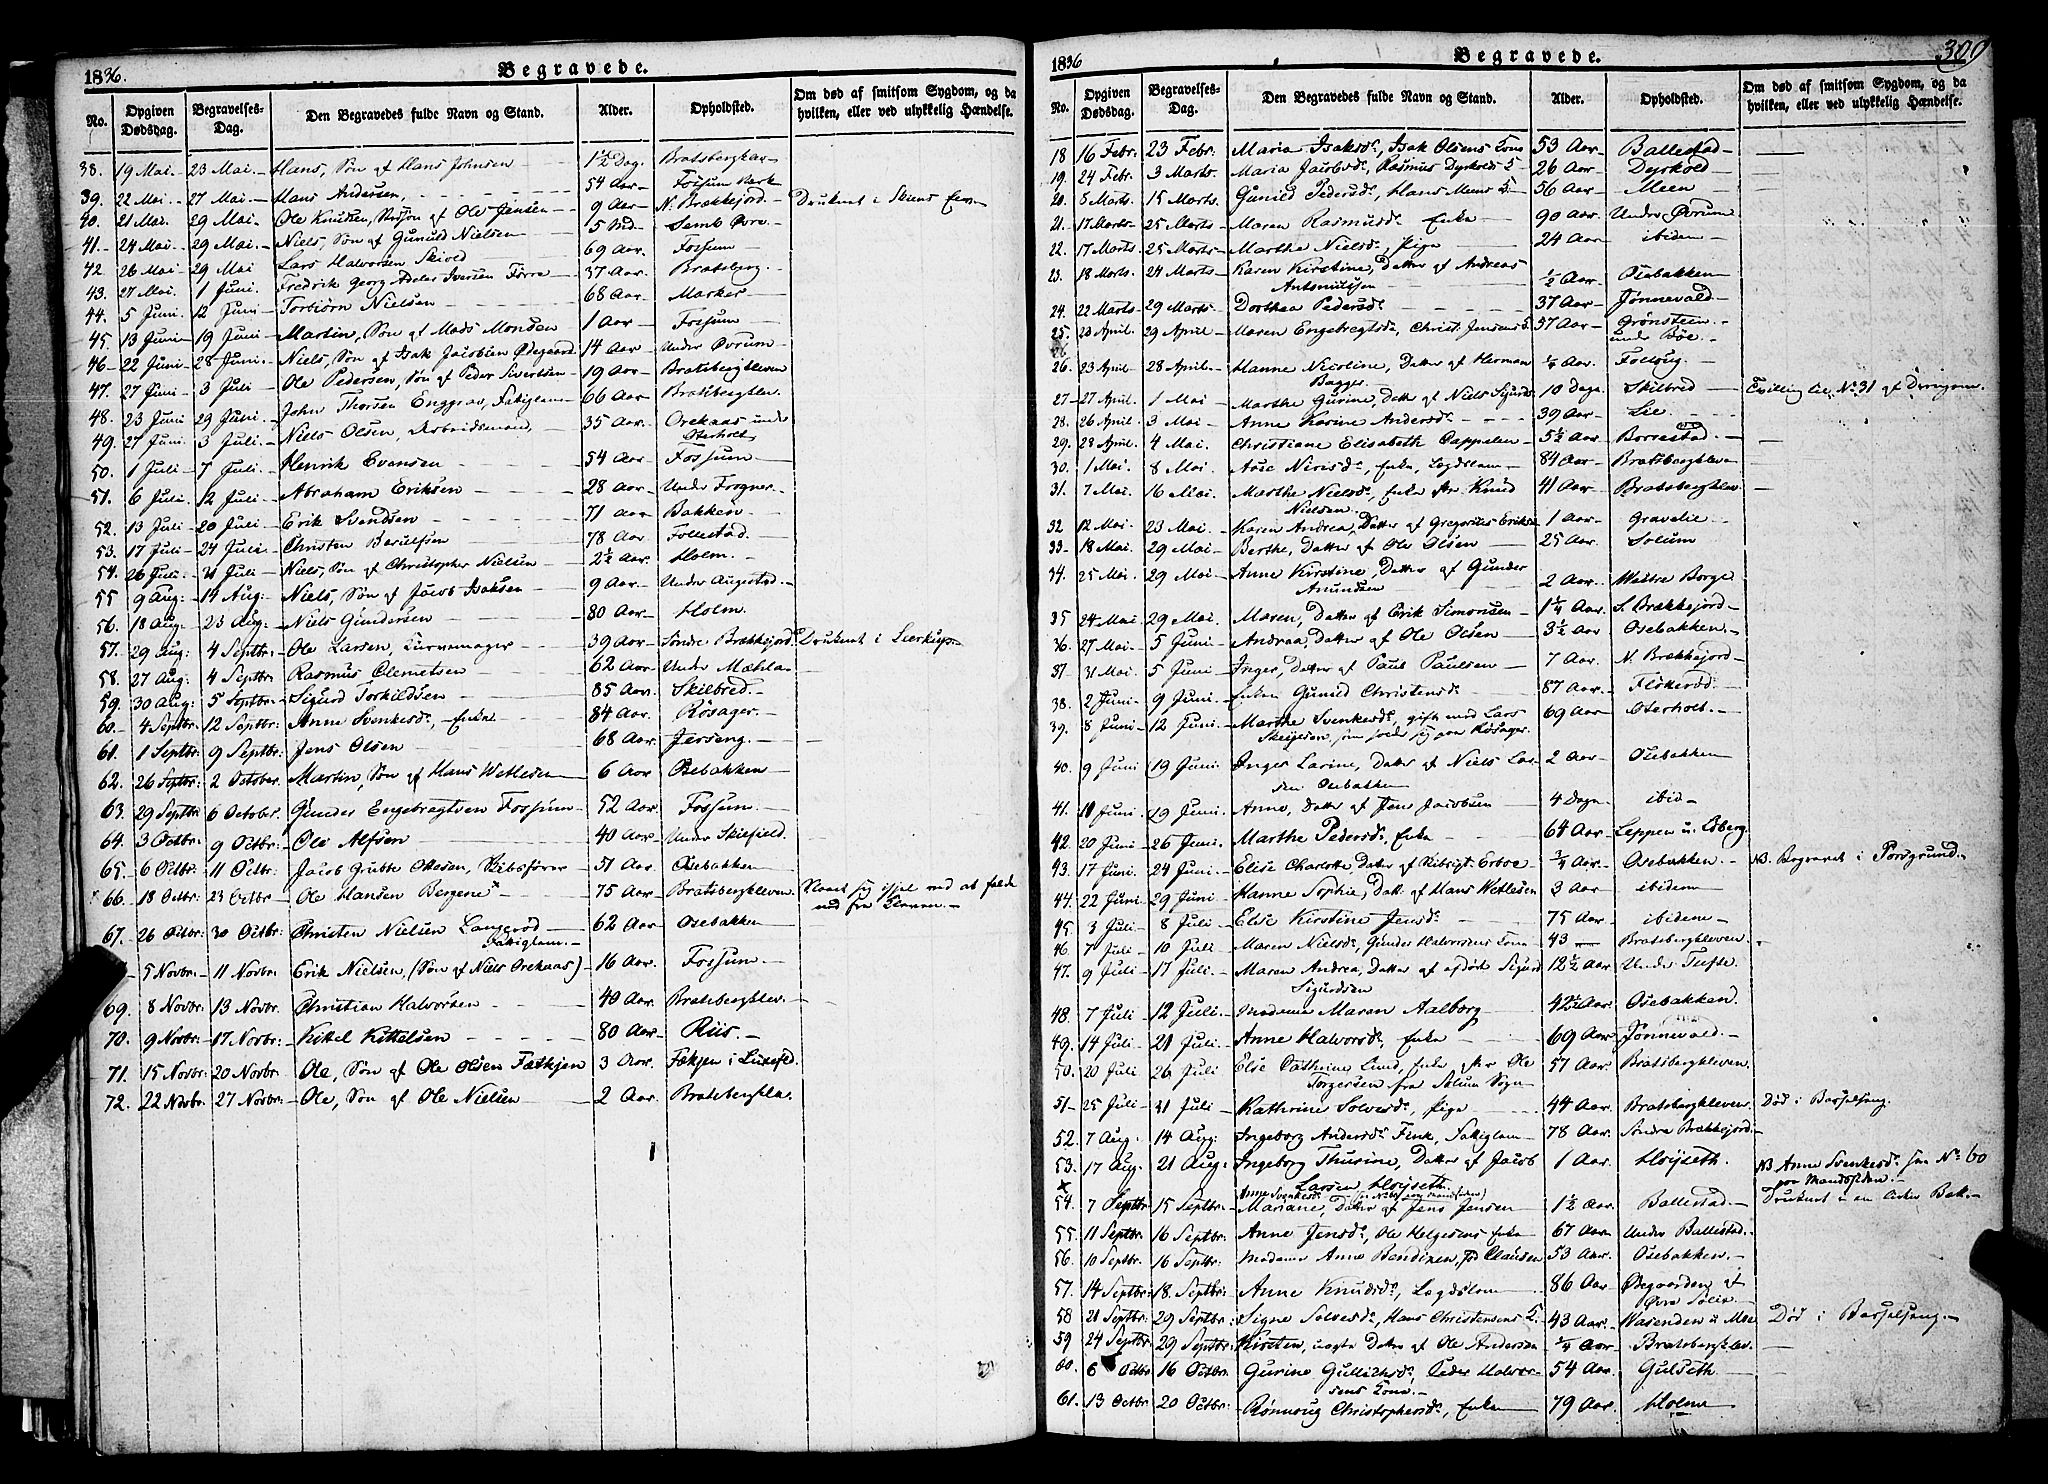 1836.
Begravede.
No. Opgiven Dødsdag. Begravelses-Dag. Den Begravedes fulde Navn og Stand. Alder. Opholdsted. Om død af smitsom Sygdom, og da hvilken, eller ved ulykkelig Hændelse.
38. 19 Mai. 23 Mai. Hans, Søn af Hans Johnsen 1½ Dag. Bratsberg
39. 22 Mai. 27 Mai. Hans Andersen, 54 Aar Fossum Værk
40. 21 Mai. 29 Mai. Ole Knudsen, af Ole Jensen 9 Aar N. Brækkejord. Druknet i Skiens
41. 24 Mai. 29 Mai. Niels, Søn af Gunuld Nielsen 5
42 26 Mai 29 Mai Lars Halvorsen 69 Aar. Fossum
43. 27 Mai. 1 Juni. Fredrik Georg Adeler Iversen 37 Aar. Bratsberg.
44. 5 Juni. 12 Juni Torbiørn Nielsen 68 Aar Marker
45. 13 Juni 19 Juni Martin, Søn af Mads Monsen 1 Aar Fossum
46. 22 Juni 28 Juni. Niels, Søn af Isak Jacobsen Ødegaard 14 Aar Under Øvrum
47. 27 Juni 3 Juli Ole Pedersen, Søn af Peder Sivertsen 19 Aar Bratsbergkleven
48. 23 Juni 29 Juni. John Thorsen Enggrav, Fattiglem 66 Aar Bratsbergklev.
49. 27 Juni. 3 Juli. Niels Olsen, Arbeidsmand, 35 Aar. Orekaas under
Osterholt
50. 1 Juli 7 Juli. Henrik Evensen 54 Aar. Fossum
51. 6 Juli. 12 Juli. Abraham Eriksen 28 Aar. Under Frogner
52. 13 Juli 20 Juli Erik Svendsen 71 Aar Bakken
53. 17 Juli 24 Juli Christen 78 Aar. Follestad
54. 26 Juli. 31 Juli Niels, Søn af Christopher Nielsen 2½ Aar. Holm.
55 9 Aug: 14 Aug: Niels, Søn af Jacob Isaksen 9 Aar Under Augestad.
56. 18 Aug: 23 Aug: Niels Gundersen 80 Aar Holm
57. 29 Aug: 4 Septbr: Ole Larsen, 39 Aar Søndre Brækkejord Druknet i
58. 27 Aug: 4 Septbr: Rasmus Clemetsen 62 Aar Under Mæhla
59. 30 Aug: 5 Septbr: Sigurd Torkildsen 85 Aar. Skilbred.
60. 4 Septbr: 12 Septbr: Anne Svenkesd. Enke 84 Aar. Rösager.
61. 1 Septbr: 9 Septbr: Jens Olsen 68 Aar. Jerseng.
62. 26 Septbr: 2 October. Martin, Søn af Hans Wetlesen 6 Aar Osebakken
63. 29 Septbr 6 October. Gunder Engebregtsen Fossum 52 Aar. Fossum.
64. 3 Octbr: 9 Octbr: Ole Alfsen 40 Aar. Under Skiefield.
65. 6 Octbr: 11 Octbr: Jacob Gubbe Ottesen, Skibsfører 51 Aar. Osebakken
66. 18 Octbr: 23 Octbr Ole Hansen Bergene 75 Aar. Bratsbergkleven sig ihjel ved at falde
ned fra
67. 26 Octbr: 30 Octbr: Christen Nielsen Langerød 62 Aar Osebakken
Fattiglem.
5 Novbr: 11 Novbr: Erik Nielsen, (Søn af Niels Orekaas) 16 Aar. Fossum.
69. 8 Novbr: 13 Novbr. Christian Halvorsen 40 Aar. Bratsbergklev.
70. 9 Novbr: 17 Novbr: Kittel Kittelsen 80 Aar. Riis.
71. 15 Novbr: 20 Novbr. Ole, Søn af Ole Olsen 3 Aar. i
72. 22 Novbr: 27 Novbr: Ole, Søn af Ole Nielsen 2 Aar. Bratsbergkle.
1836
Begravede.
309
No. Opgiven Dødsdag. Begravelses-Dag. Den Begravedes fulde Navn og Stand. Alder. Opholdsted. Om død af smitsom Sygdom, og da hvilken, eller ved ulykkelig Hændelse.
18 16 Febr: 23 Febr: Maria Isaksd., Isak Olsens Kone 53 Aar Ballestad
19. 24 Febr. 3 Marts. Maria Jacobsd., Rasmus Dyrkolds K 26 Aar. Dyrkold
20. 5 Marts. 15 Marts. Gunild Pedersd., Hans Meens K 56 Aar Meen
21. 17 Marts. 25 Marts. Maren Rasmusd. Enke 90 Aar. Under Øvrum
22. 17 Marts. 25 Marts Marthe Nielsd., Pige 24 Aar ibidem
23. 18 Marts. 24 Marts Karen Kirstine, Datter af Andreas
½ Aar. Osebakken
24. 22 Marts. 29 Marts Dorthea Pedersd. 37 Aar. Jønnevald.
25. 23 April. 29 April Maren Engebregtsd., Christ. Jensens K. 57 Aar. Grønsteen
under Bøe.
26. 23 April 28 April. Hanne Nicoline, Datter af Herman ¼ Aar.
Bagger
27 27 April 1 Mai Marthe Gurine, Datt. af Niels Sigurds 10 Dage Skilbred Tvilling til No 31 af Drengene.
28. 26 April. 3 Mai Anne Karine Andersd. 39 Aar. Lie
29. 28 April 4 Mai. Christiane Elisabeth Cappelen 5½ Aar. Borrestad.
30. 1 Mai. 8 Mai. Enke, Lægdslem 84 Aar. Bratsbergkleven
31. 7 Mai. 16 Mai. Marthe Nielsd., Enke Knud 41 Aar Bratsbergklev.
Nielsen.
32 12 Mai. 23 Mai. Karen Andrea, Datter af Gregorius Eriksen 1 Aar. Gravelie.
33 18 Mai. 29 Mai Berthe, Datter af Ole Olsen 25 Aar. Solum
34. 25 Mai. 29 Mai Anne Kirstine, Datter af Gunder
Amundsen 2 Aar. Westre Borge
35 24 Mai 29 Mai. Maren, Datter af Erik Simonsen 1¼ Aar. S. Brækkejord
36. 27 Mai 5 Juni Andrea, Datter af Ole Olsen 3½ Aar. Osebakken.
37 31 Mai. 5 Juni Inger, Datter af Paul Paulsen 7 Aar. N. Brækkejord
38. 2 Juni 9 Juni Enken Gunild Christensd. 87 Aar.
39. 8 Juni 12 Juni. Marthe Svenkesd. gift med Lars 69 Aar Osterholt.
40. 9 Juni 19 Juni. Inger Larine, Datter af Niels Lar- 2 Aar Osebakken
sen Osebakken
41. 10 Juni 19 Juni. Anne, Datter af Jens Jacobsen 4 Dage ibid
42. 20 Juni 26 Juni. Marthe Pedersd. Enke 64 Aar.
43. 17 Juni. 24 Juni. Elise Charlotte Datter af 3/4 Aar. Osebakken NB. Begravet i Porsgrund.
44. 22 Juni 29 Juni Hanne Sophie, Datt. af Hans Wetlesen 3 Aar ibidem
45 3 Juli 8 Juli Else Kirstine Jensd. 75 Aar. ibidem
46. 7 Juli 10 Juli Maren Nielsd., Gunder Halvorsens Kone 43 Bratsbergkleven.
47. 9 Juli 17 Juli. Maren Andrea, Datter af afdøde Sigurd 12½ Aar. Under Tufte.
Sigurdsen
48. 7 Juli 12 Juli. Madame Maren Aalborg 42½ Aar. Osebakken.
49. 14 Juli. 21 Juli. Anne Halvorsd. Enke 69 Aar Jønnevald.
50. 20 Juli 26 Juli Else Cathrine Lund, Enke Ole 57 Aar. Bratsbergkleven
Torgersen fra Solum Sogn
51 25 Juli 31 Juli Kathrine Solvesd., Pige 44 Aar. Bratsbergkleven Død i Barselseng.
52. 7 Aug: 14 Aug: Ingeborg Andersd. Fink, Fattiglem 78 Aar. Brækkejord
53. 17 Aug: 21 Aug: Ingeborg Thurine, Datter af Jacob 1 Aar. Høyseth. NB Anne Svenkesd. see No 60
Larsen Høyseth. paa Mandssiden.
54. 7 Septbr 15 Septbr. Mariane, Datter af Jens Jensen 1½ Aar. Ballestad. Druknet i en liden Bæk.
55. 11 Septbr. 16 Septbr: Anne Jensd., Ole Helgesens Enke 67 Aar Under Ballestad.
56. 10 Septbr. 16 Septbr: Madame Anne Bendixen, f. Clausen 53 Aar. Osebakken.
57. 14 Septbr: 18. Septbr: Anne Knudsd., Lægdslem 86 Aar. af
58 21 Septbr: 29 Septbr: Signe Solvesd., Hans Christensens K. 43 Aar. u. Mæla Død i Barselseng.
59 24 Septbr 29 Septbr Kirsten, uægte Datter af Ole Andersen ¼ Aar Bratsbergklev.
60. 6 Octbr 16 Octbr: Gurine Gullichsd., Peder Halvor- 54 Aar. Gulseth.
sens Kone.
61. 13 Octbr: 20 Octbr: Rønnoug Christophersd., Enke 79 Aar. Holm